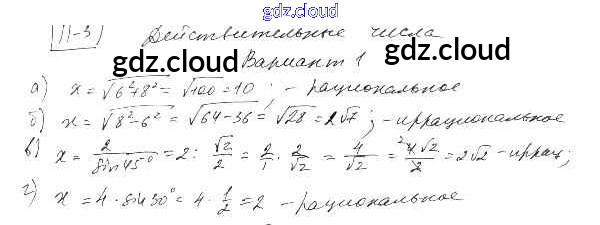 gdz.cloud
П-3 Действительные числа
gdz.cloud gdz.cloud
Вариант 1
а) x = √6²+8² = √100 = 10 ; - рациональное
б) x = √8²-6² = √64-36 = √28 = 2√7 ; - иррациональное
в) x = 2/sin45° = 2 : √2/2 = 2/1 · 2/√2 = 4/√2 = 4√2/2 = 2√2 - иррац ;
г) x = 4 · sin30° = 4 · 1/2 = 2 - рациональное